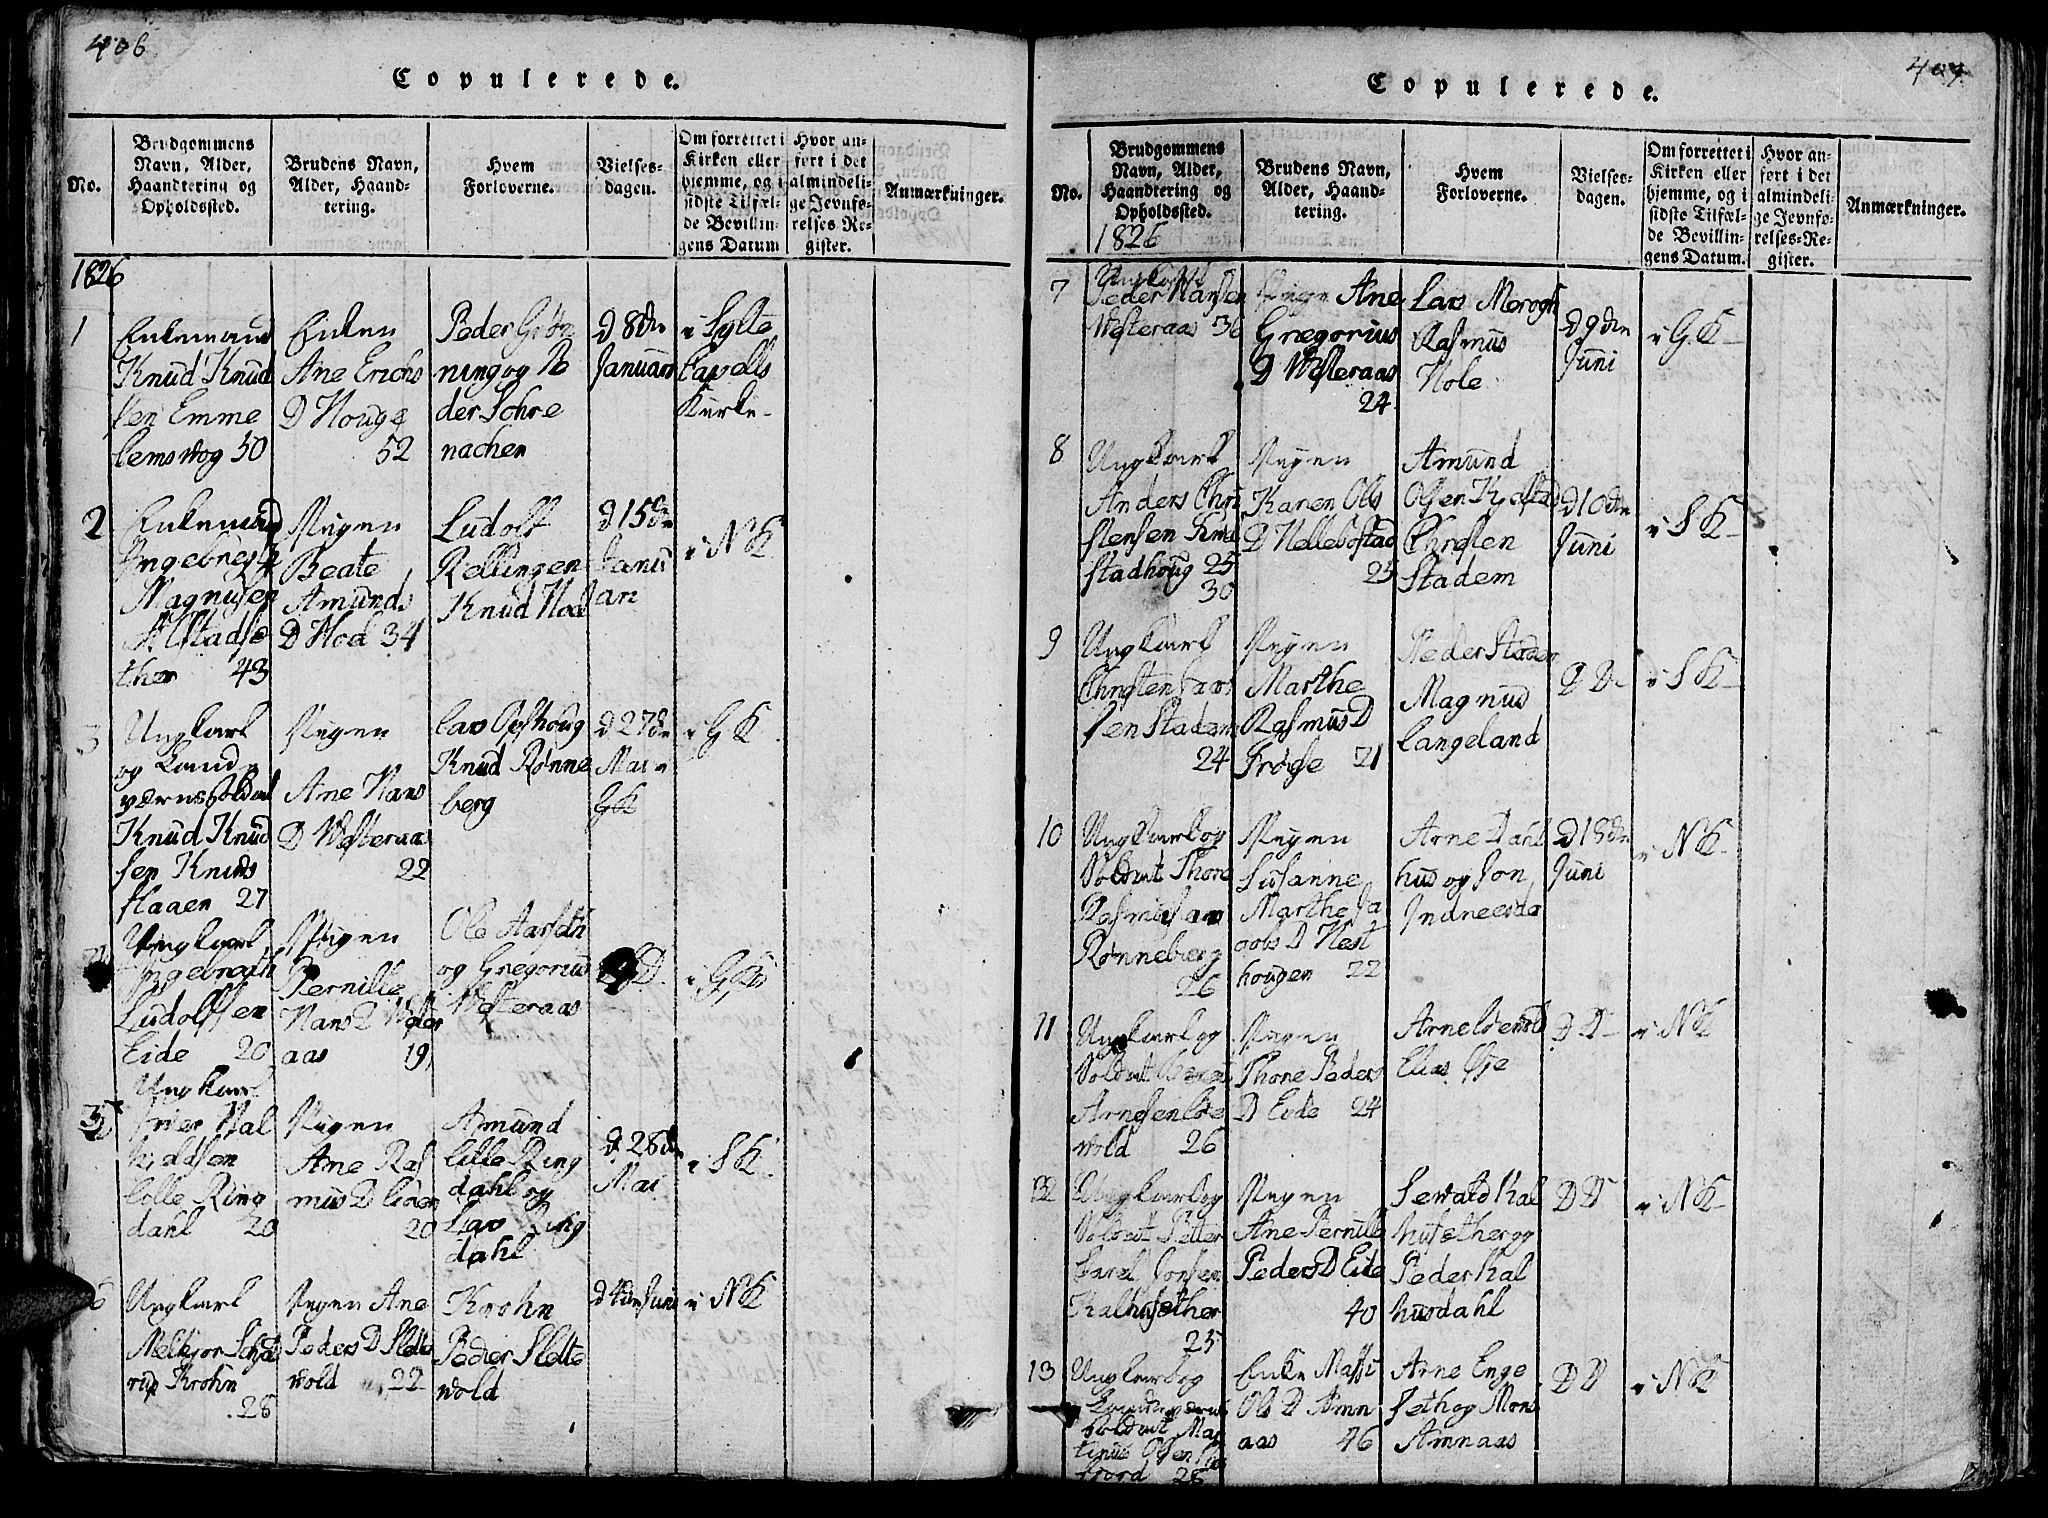 406
Copulerede.
No.
Brudgommens
Navn, Alder,
Haandtering og
Opholdssted.
Brudens Navn,
Alder, Haand-
tering.
Hvem
Forloverne.
Vielses-
dagen.
Om forrettet i
Kirken eller
hjemme, og i
sidste Tilfæl-
de Bevillin-
gens Datum
Hvor an-
ført i det
almindeli-
ge Jevnfø-
relses-Re-
gister.
Anmærkninger.
1826
1
Enkemand
Knud Knud
sen Emme
lemswog 50
Enken
Ane Erichs
D Houge
52
Peder Grøn
ning og Pe
der Sohre
nachen
D 8de
Januari
i Sylte
Capells
Kirke
2
Enkemand
Ingebregt
Magnusen
Alstadsæ
ther 43
Pigen
Beate
Amunds
D Hoel 34
Ludolf
Rellingen
Knud Hoel
D 15de
Janu
ari
i NK
3
Ungkarl
og Land
værnssoldat
Knud Knud
sen Knuds
flaaen 27
Pigen
Ane Hans
D Westeraas
22
Lars Opshoug
Knud Rønne
berg
D 27de
Mai
GK
i GK
Ungkarl
Ingebregth
Ludolfsen
Eide 20
Pigen
Pernille
Hans D Wester
aas 19
Ole Aarseth
og Gregorius
Westeraas
D D
i GK
Ungkarl
Iver Hal
kieldsen
Lille Ring
dahl 20
Pigen
Ane Ras
mus D Lien
20
Amund
Lille Ring
dahl og
Lars Ring
dahl
D 28de
Mai
i SK
6
Ungkarl
Melkjor Schjel
rup Krohn
28
Pigen Ane
Peders D Slette
wold 22
Krohn
Peder Slette
wold
D 4de Juni
i NK
407
Copulerede.
No.
Brudgommens
Navn, Alder,
Haandtering og
Opholdssted.
1826
Brudens Navn,
Alder, Haand-
tering.
Hvem
Forloverne.
Vielses-
dagen.
Om forrettet i
Kirken eller
hjemme, og i
sidste Tilfæl-
de Bevillin-
gens Datum.
Hvor an-
ført i det
almindeli-
ge Jevnfø-
relses-Re-
gister.
Anmærkninger.
7
Ungkarl
Peder Hansen
Westeraas 30
Pigen Ane
Gregorius
D Westeraas
24
Lars Merogh
Rasmus
Hole
D 9de
Juni
i GK
8
Ungkarl
Anders Chri
stensen
Stadhoug 25
30
Pigen
Karen Ols
D Hellebostad
25
Amund
Olsen Kjelstad
Christen
Stadem
D 10de
Juni
i SK
9
Ungkarl
Christen Lars
sen Stadem
24
Pigen
Marthe
Rasmus D
Frøise 21
Peder Stadem
Magnus
Langeland
D D
i SK
10
Ungkarl og
Soldat Thore
Rasmusen
Rønneberg
26
Pigen
Susanne
Marthe Ja
cobs D Nest
hougen 22
Arne Dahl
hus og Jon
Indreeide
D 18de
Juni
i NK
11
Ungkarl og
Soldat
Arnesen Løe
wold 26
Pigen
Thone Peders
D Eide 24
Arne Løewold
Elias Øje
D D
i NK
12
Ungkarl og
Soldat Petter
Carel Jonsen
Kalhusæther
25
Pigen
Ane Pernille
Peders D Eide
40
Sewald Kal
husæther og
Peder Kal
husdahl
D D
i NK
13
Ungkarl og
Landværns
Soldat Mar
tinus Olsen
fjord 28
Enke Massi
Ols D Amn
aas 46
Arne Enge
seth og Mons
Amnaas
D D
i NK